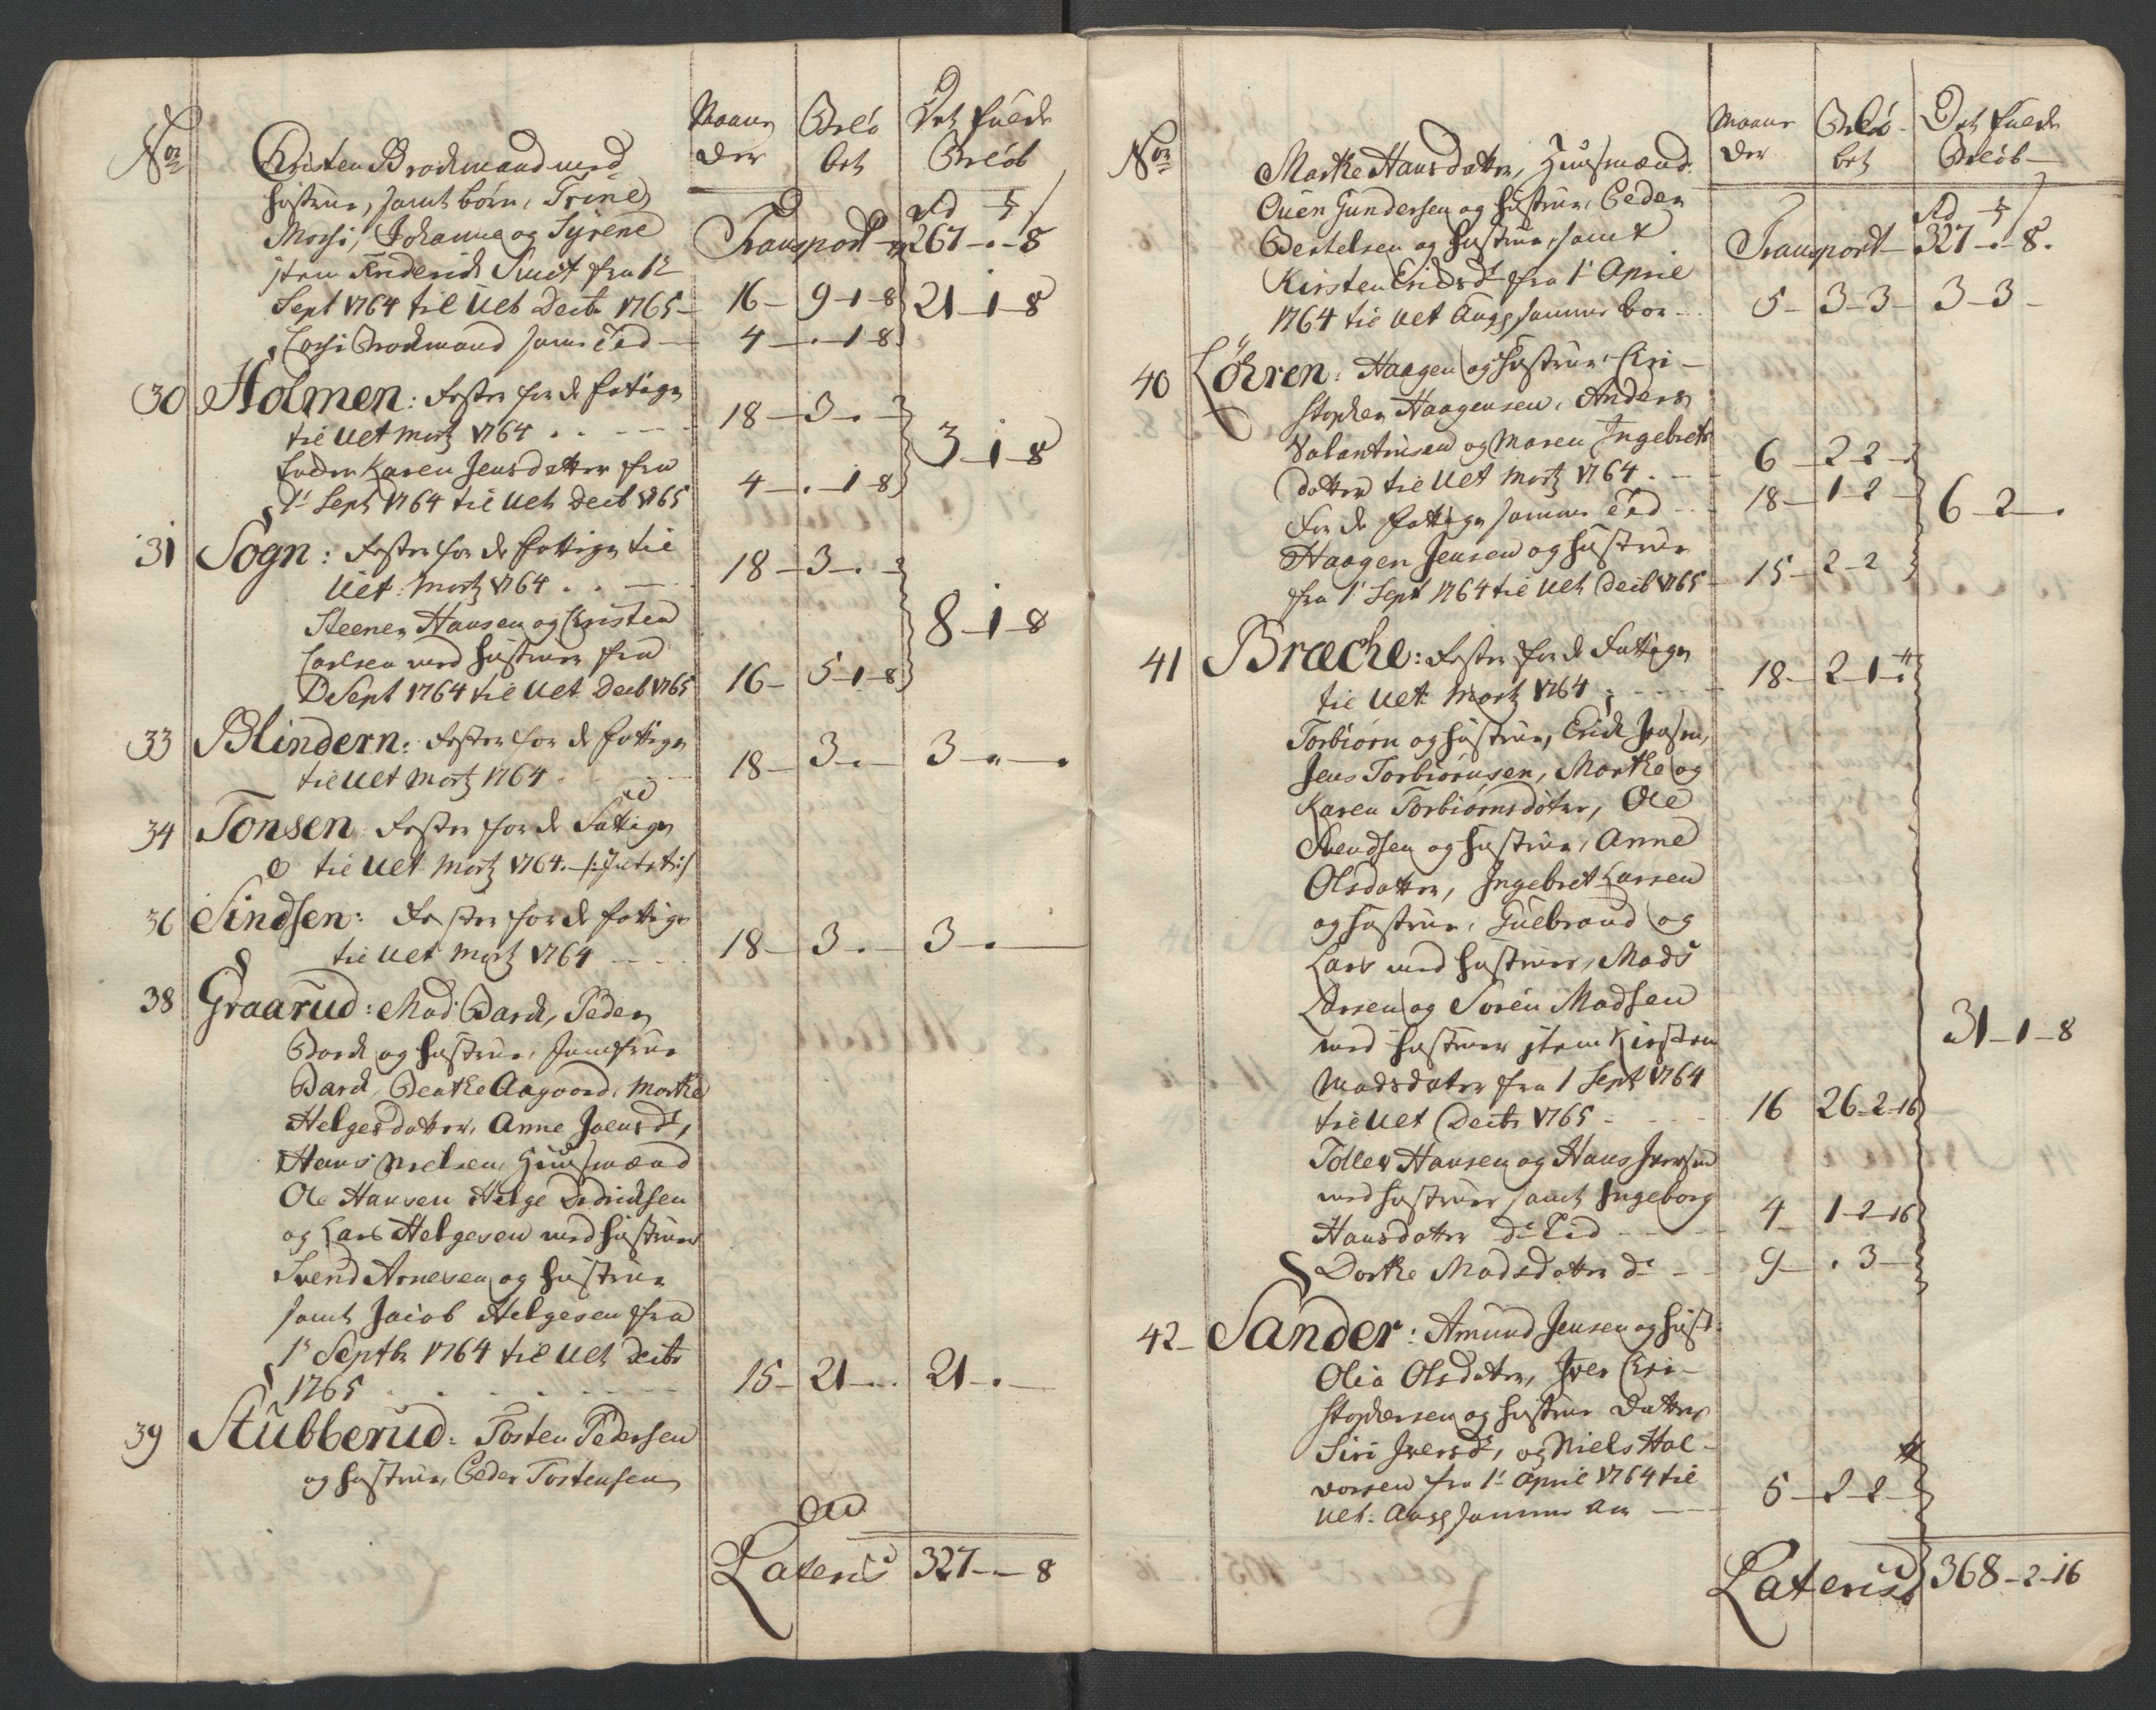 No
Christen Brochmand med
Hustrue, samt børn, Trine,
Morsi, Johanne og Syrene
item Friderich Smit fra 1te
Sept 1764 til Ult Decb. 1765 – 16 – 9-1-8
Corsi Brochmand samme Tid – 4 – . -1-8
Maane
der
Belø
bet
Det fulde
Beløb
Rd
Transport – 267 - . - 8
21-1-8
30 Holmen: Fester for de fattige
til Ult Martz 1764 . . 18 – 3 .
Enken Karen Jensdatter fra
1t Sept 1764 til Ult Decb 1765 4 – . -1-8
3-1-8
31 Sogn: Fester for de fattige til
Ult. Martz 1764 . . 18 – 3 – .
Steener Hansen og Christen
Carlsen med Hustruer fra
1 Sept 1764 til Ult Decb 1765 16 – 5-1-8
8-1-8
33 Blindern: Fester for de fattige
til Ult Martz 1764 . 18 – 3 - . – 3 - " - .
34 Tonsen: Fester for de Fattige
til Ult Martz 1764.
36 Sindsen: Fester for de fattige
til Ult Martz 1764 18 – 3 . – 3 – .
38 Graarud: Mad: Darck, Peder
Darck og Hustrue, Jomfrue
Darck, Beathe Aagaard, Marthe
Helgesdatter, Anne Joensdr,
Hans Nielsen, Huusmænd
Ole Hansen Helge Didrichsen
og Lars Helgesen med Hustruer
Svend Arnesen og Hustrue
samt Jacob Helgesen fra
1t Septbr 1764 til Ult Decbr
1765 . . . . 15 – 21 - . . 21 - . –
39 Stubberud: Tosten Pedersen
og Hustrue, Peder Tostensen
Lateris 327 - . - 8
No
Marthe Hansdatter, Huusmænd
Ouen Gundersen og Hustrue, Peder
Bertelsen og Hustrue, samt
Kirsten Erichsdr fra 1t April
1764 til Ult Aug samme Aar 5 – 3-3 – 3-3 –
Maane
der
Belø
bet
Det fulde
Beløb
Rd
Transport – 327 - . - 8.
40 Löhren: Haagen og Hustrue Chri-
stopher Haagensen, Anders
Valantinsen og Maren Ingebrets
datter til Ult Martz 1764 . – 6 – 2-2 –
For de fattige samme Tid – 18 – 1-2 –
Haagen Jensen og Hustrue
fra 1t Sept 1764 til Ult Decb 1765 – 15 – 2-2
6-2 - .
41 Bræche: Fester for de Fattige
til Ult Martz 1764 . 18 – 2-1 -
Torbiørn og Hustrue, Erich Jensen,
Jens Torbiørnsen, Marthe og
Karen Torbiørnsdøtre, Ole
Svendsen og Hustrue, Anne
Olsdatter, Ingebret Larsen
og Hustrue, Gulbrand og
Lars med Hustruer, Mads
Larsen og Søren Madsen
med Hustruer item Kirsten
Madsdatter fra 1 Sept 1764
til Ult Decbr 1765 – 16 26-2-16
31-1-8
Tollev Hansen og Hans Iversen
med Hustruer samt Ingeborg
Hansdatter dto Tid – 4 – 1-2-16
Dorthe Madsdatter dto – 9 – . 3 –
42 – Sander: Amund Jensen og Hust:
Olia Olsdatter, Iver Chri-
stophersen og Hustrue Datter
Siri Iversdr, og Niels Hal-
vorsen fra 1t April 1764 til
Ult. Aug samme Aar – 5 – 2-2 –
Lateris 368-2-16